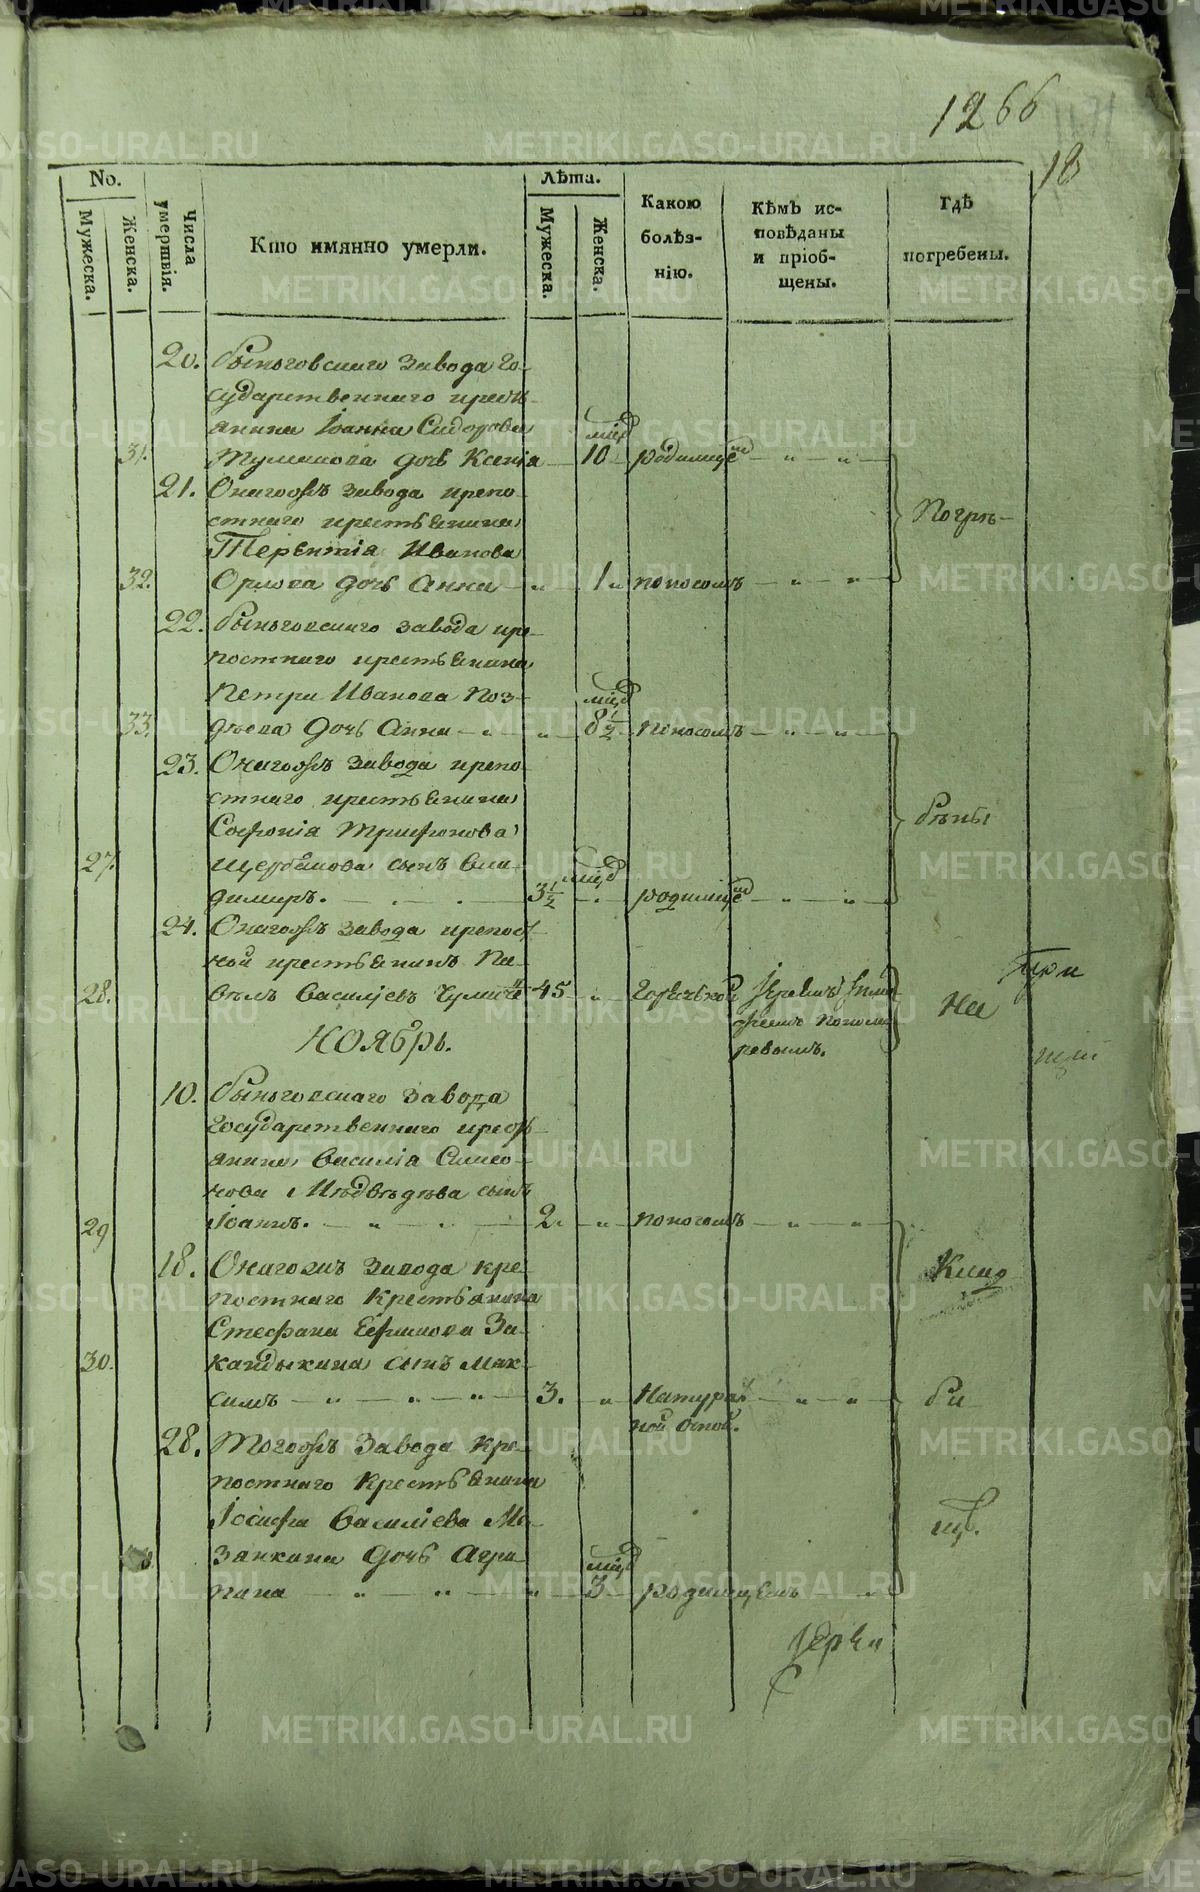 1266
18
No.
Мужеска.
Женска.
Числа умертвія.
Кто имянно умерли.
Лѣта.
Мужеска.
Женска.
Какою болѣз-нію.
Кѣмъ ис-повѣданы и пріоб-щены.
Гдѣ погребены.
20. Быньговскаго завода го-
сударственнаго кресть-
янина Іоанна Сидорова
31. дочь Ксенія 10 родимцемъ
21. Онагожъ завода крѣпо-
стнаго крестьянина
Терентія Иванова
32. Орлова дочь Анна 1 поносомъ
Погрѣ-
22. Быньговскаго завода крѣ-
постнаго крестьянина
Петра Иванова Поз-
33. дѣева дочь Анна 8½ поносомъ
23. Онагожъ завода крѣпо-
стнаго крестьянина
Софонія Трифонова
бѣны
27. Щербакова сынъ Вла-
димиръ. 3½ родимцемъ
24. Онагожъ завода крѣпост-
ной крестьянинъ Па-
28. велъ Василіевъ 45 горячькой Іереемъ
На
при
НОЯБРЬ.
10. Быньговскаго завода
Государственнаго кресть-
янина Василія Симео-
нова Медвѣдева сынъ
29 Іоаннъ. 2. поносомъ
18. Онагожъ завода кре-
постнаго Крестьянина
Клад-
Стефана Ефимова За-
30. сынъ Мак-
симъ 3. Натураль-
ной оспой.
би
28. Тогожъ завода Кре-
постнаго Крестьянина
Іосифа Василіева Ма-
щѣ.
занкина дочь Агри-
пина 3 родимцемъ
Іереи
METRIKI.GASO-URAL.RU